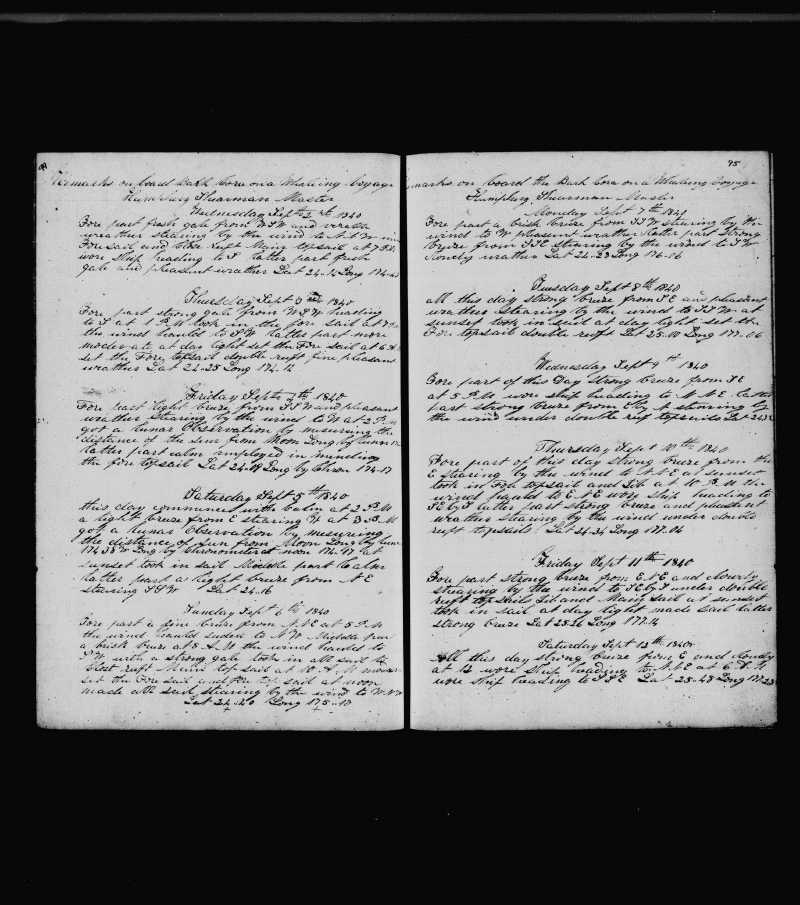 Remarks on board Bark Cora on a Whaleing Voyage
Humphry Shearman Master
Wednesday Sept 2 1840
Fore part fresh gale from W S W and
weather stearing by the wind to N W
Fore sail and Close Reeft Main topsail at 7 P M
wore Ship heading to S latter part fresh
gale and pleasant weather Lat 24-14 Long 174-
Thursday Sept 3 1840
Fore part strong gale from W S W heading
to S at 1 P M took in the fore sail at
the wind hauld to S W latter part more
moderate at day light set the Fore sail at 6
set the Fore topsail double ruft fine pleasant
weather Lat 24-25 Long 174-12
Friday Sept 4th 1840
Fore part light breze from S S W and pleasant
weather Stearing by the wind to W at 2 P M
got a lunar Observation by mesureing the
distance of the sun from Moon Long by lunar
latter part calm employed in mending
the fore topsail Lat 24-09 Long by Chron 174-17
Saturday Sept 5th 1840
this day commences with Calm at 2 P M
a light breze from E stearing W at 3 P M
got a lunar Observation by mesureing
the distance of sun from Moon Long by lun
174-38 W Long by Chronometer at noon 174-47 at
sunset took in sail Middle part Calm
latter part a light breze from N E
stearing S S W Lat 24-16
Sunday Sept 6th 1840
Fore part a fine breze from N N E at 5 P M
the wind hauld suden to N W Middle par
a brisk breze at 5 A M the wind hauled to
S W with a strong gale took in all sail to
Close ruft Main top sail at 10 A M
set the Fore sail and fore top sail at noon
made all sail stearing by the wind to W N W
Lat 24-40 Long 175-13
95
marks on board the Bark Cora on a Whaleing Voyage
Humphry Shearman Master
Monday Sept 7th 1840
Fore part a brisk breze from S S W stearing by the
wind to W pleasant weather latter part strong
breze from S S E stearing by the wind to S W
Cloudy weather Lat 24-23 Long 176-06
Tuesday Sept 8th 1840
all this day strong breze from S E and pleasent
weather stearing by the wind to S S W at
sunset took in sail at day light set the
Fore topsail double ruft Lat 25-00 Long 177-06
Wednesday Sept 9th 1840
Fore part of this Day strong breze from S E
at 5 P M wore ship heading to N N E latter
part strong breze from E by N stearing by
the wind under double ruf topsails Lat 24-
Thursday Sept 10th 1840
Fore part of this day strong breze from the
E stearing by the wind to N N E at sunset
took in Fore topsail and Jib at 10 P M the
wind hauld to E N E wore ship heading to
S E by S latter part strong breze and pleasent
weather stearing by the wind under double
ruft topsails Lat 24-34 Long 177-04
Friday Sept 11th 1840
Fore part strong breze from E N E and cloudy
stearing by the wind to S E by S under double
ruft top sails Jib and Main sail at sunset
took in sail at day light made sail latter
strong breze Lat 25-26 Long 177-14
Saturday Sept 12th 1840
All this day strong breze from E and cloudy
at 12 wore ship heading to N N E at 6 A M
wore ship heading to S S E Lat 25-43 Long 177-23